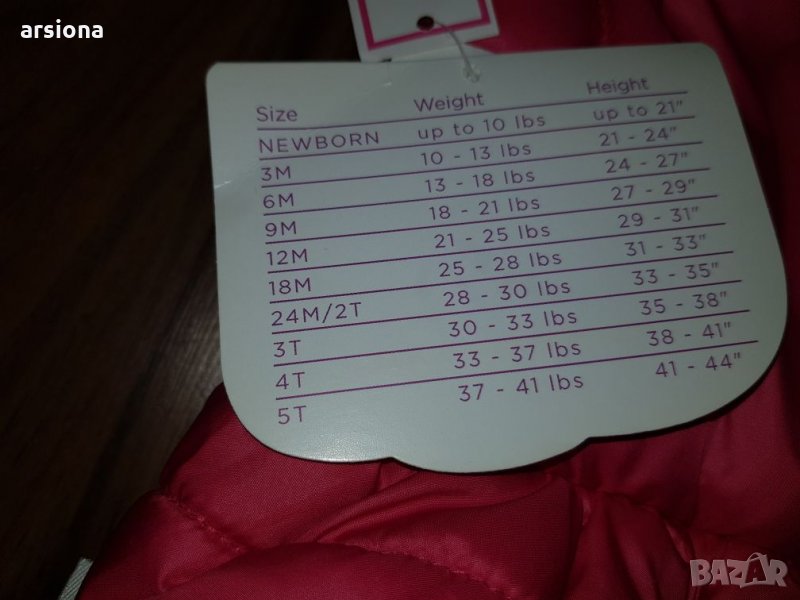 arsiona
Size Weight Height
NEWBORN up to 10 lbs up to 21"
3M 10 - 13 lbs 21 - 24"
6M 13 - 18 lbs 24 - 27"
9M 18 - 21 lbs 27 - 29"
12M 21 - 25 lbs 29 - 31"
18M 25 - 28 lbs 31 - 33"
24M/2T 28 - 30 lbs 33 - 35"
3T 30 - 33 lbs 35 - 38"
4T 33 - 37 lbs 38 - 41"
5T 37 - 41 lbs 41 - 44"
BAZAR